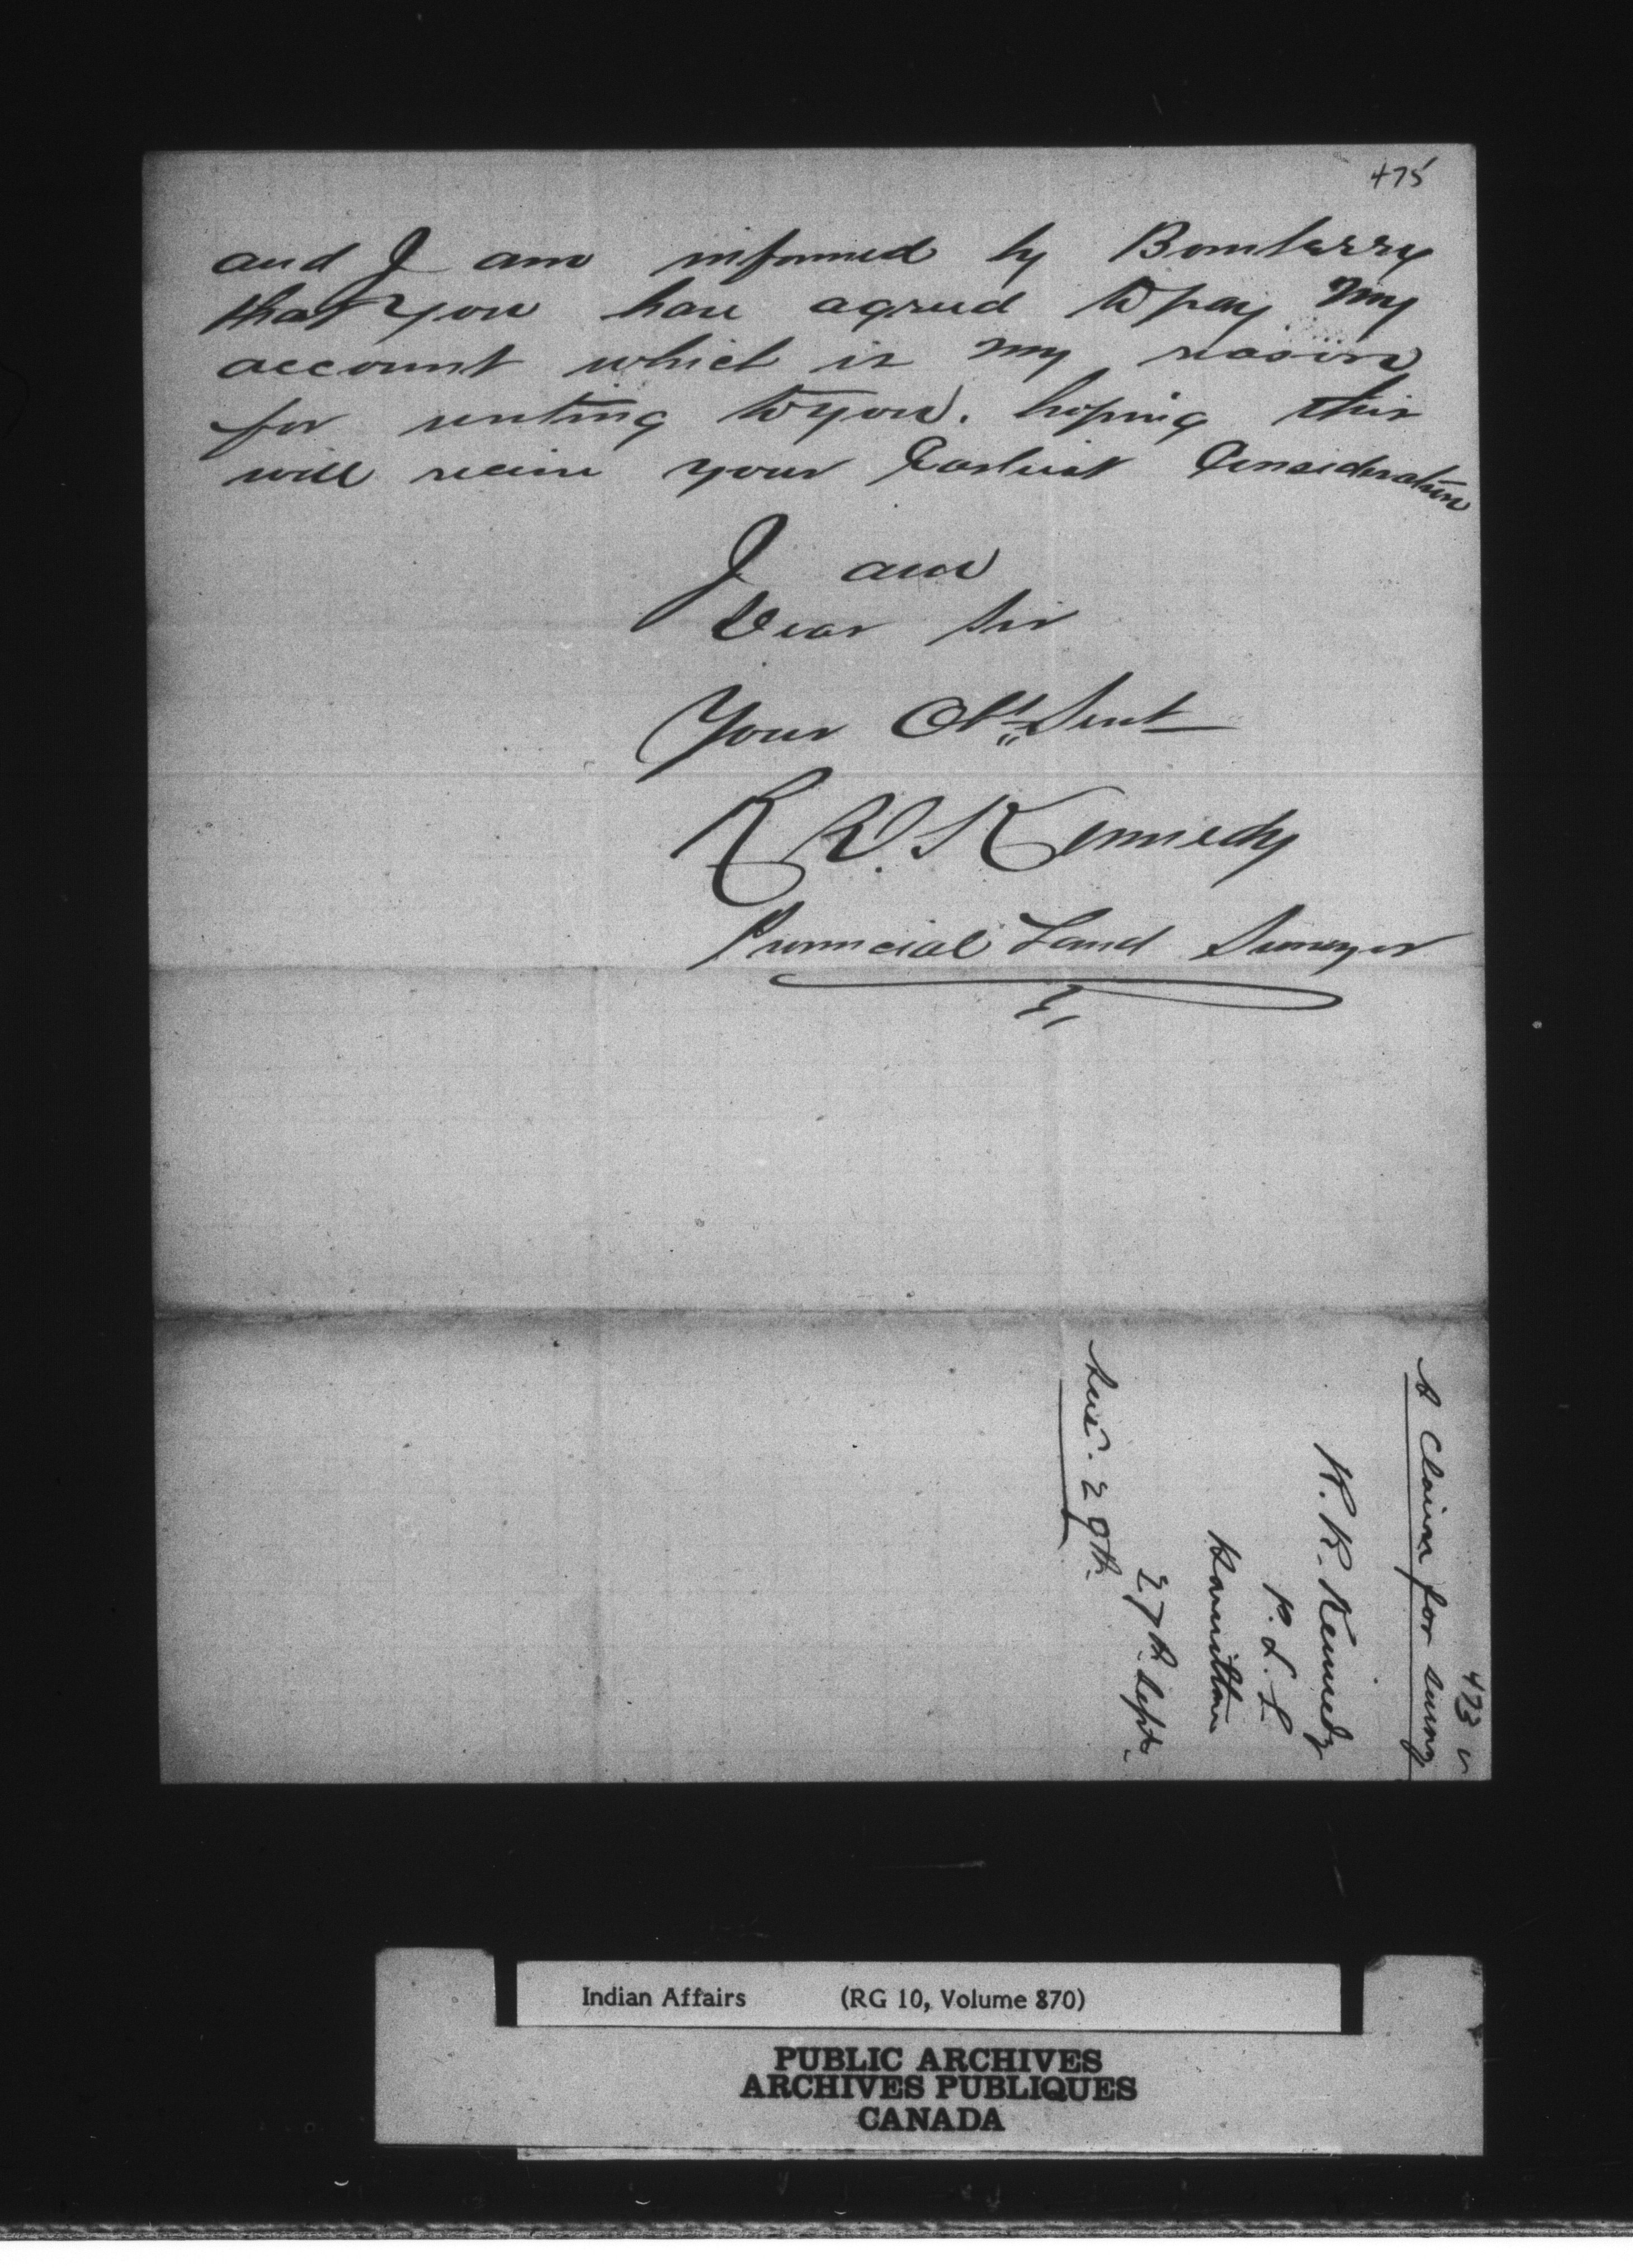 475
and I am informed by Bomberry
that you have agreed to pay my
account which is my reason
for writing to you. hoping this
will receive your Earliest Consideration
I am
Dear Sir
Your Obt Servt
R R. Kennedy
Provincial Land Surveyor
473
A Claim for survey
R. R. Kennedy
P. L. S
Hamilton
27th Septr
29th
Indian Affairs (RG 10, Volume 870)
PUBLIC ARCHIVES
ARCHIVES PUBLIQUES
CANADA